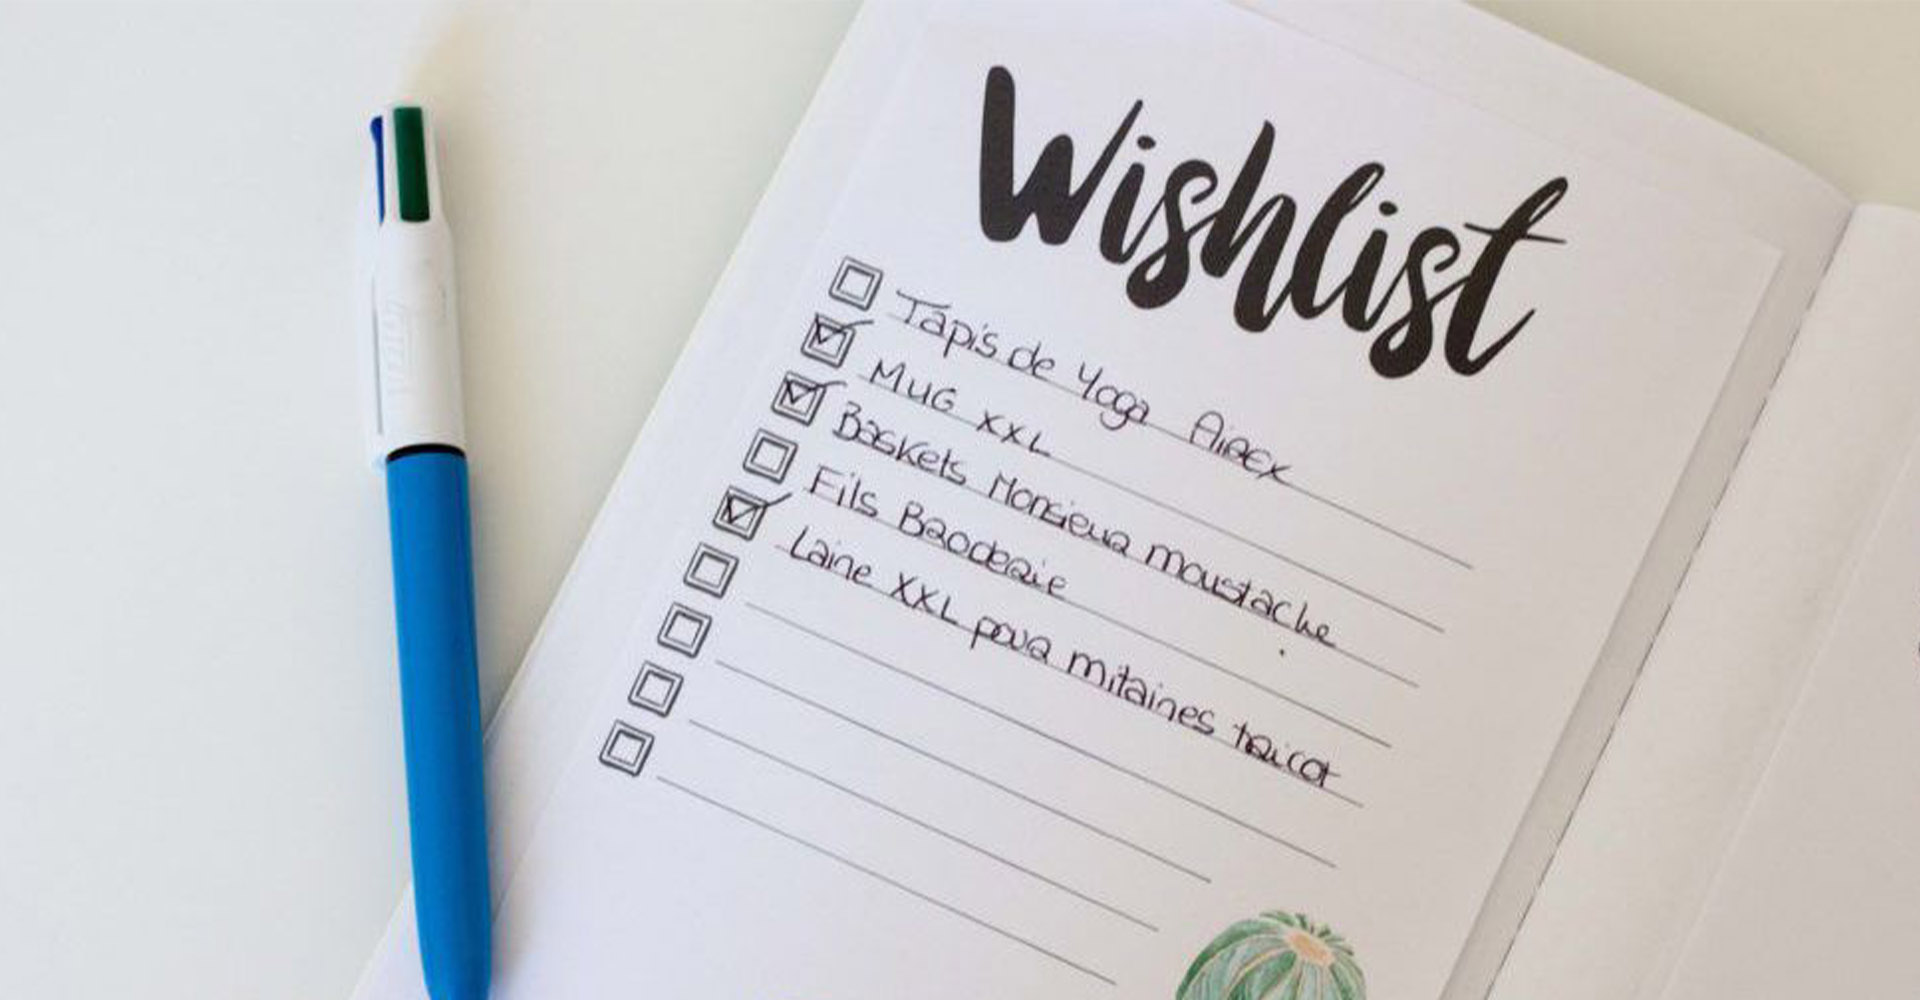 Wishlist
Tapis de Yoga Airex
MUG XXL
Baskets Monsieur moustache
Fils Broderie
Laine XXL pour mitaines tricot